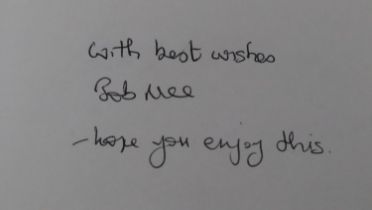 With best wishes
Bob Mee
- hope you enjoy this.